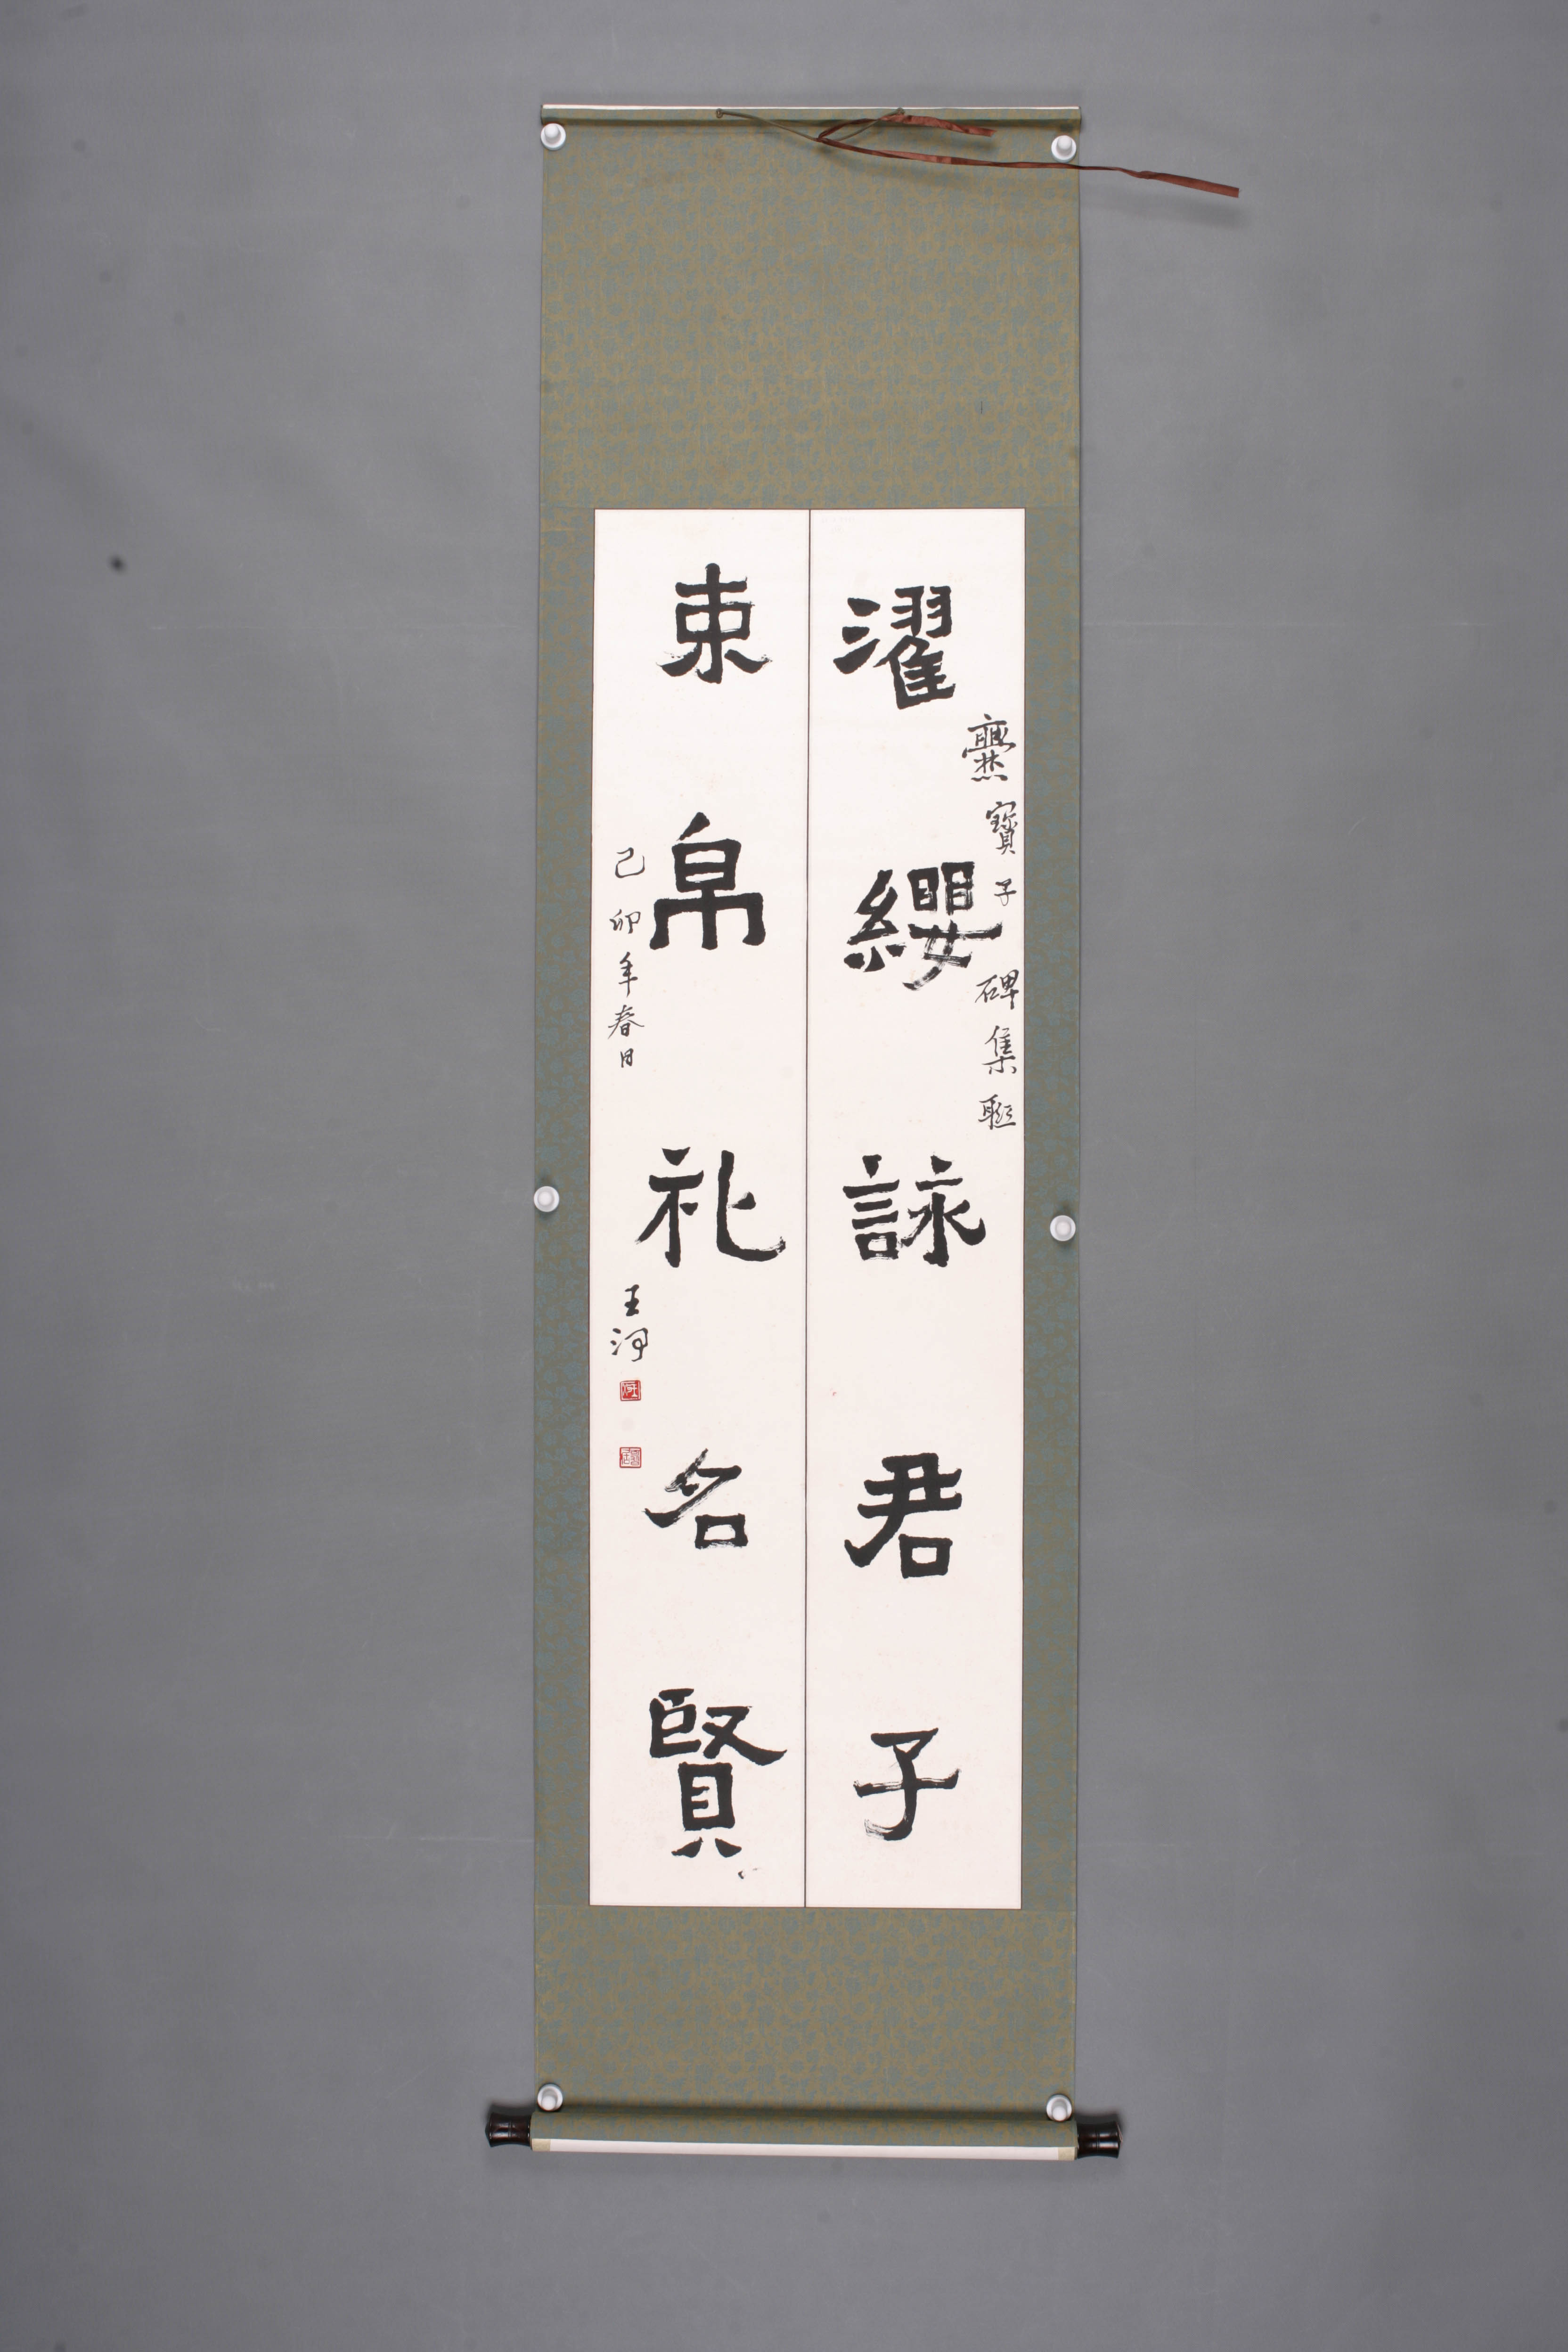 濯纓詠君子
爨寶子碑集聯
束帛礼名賢
己卯年春日
王河